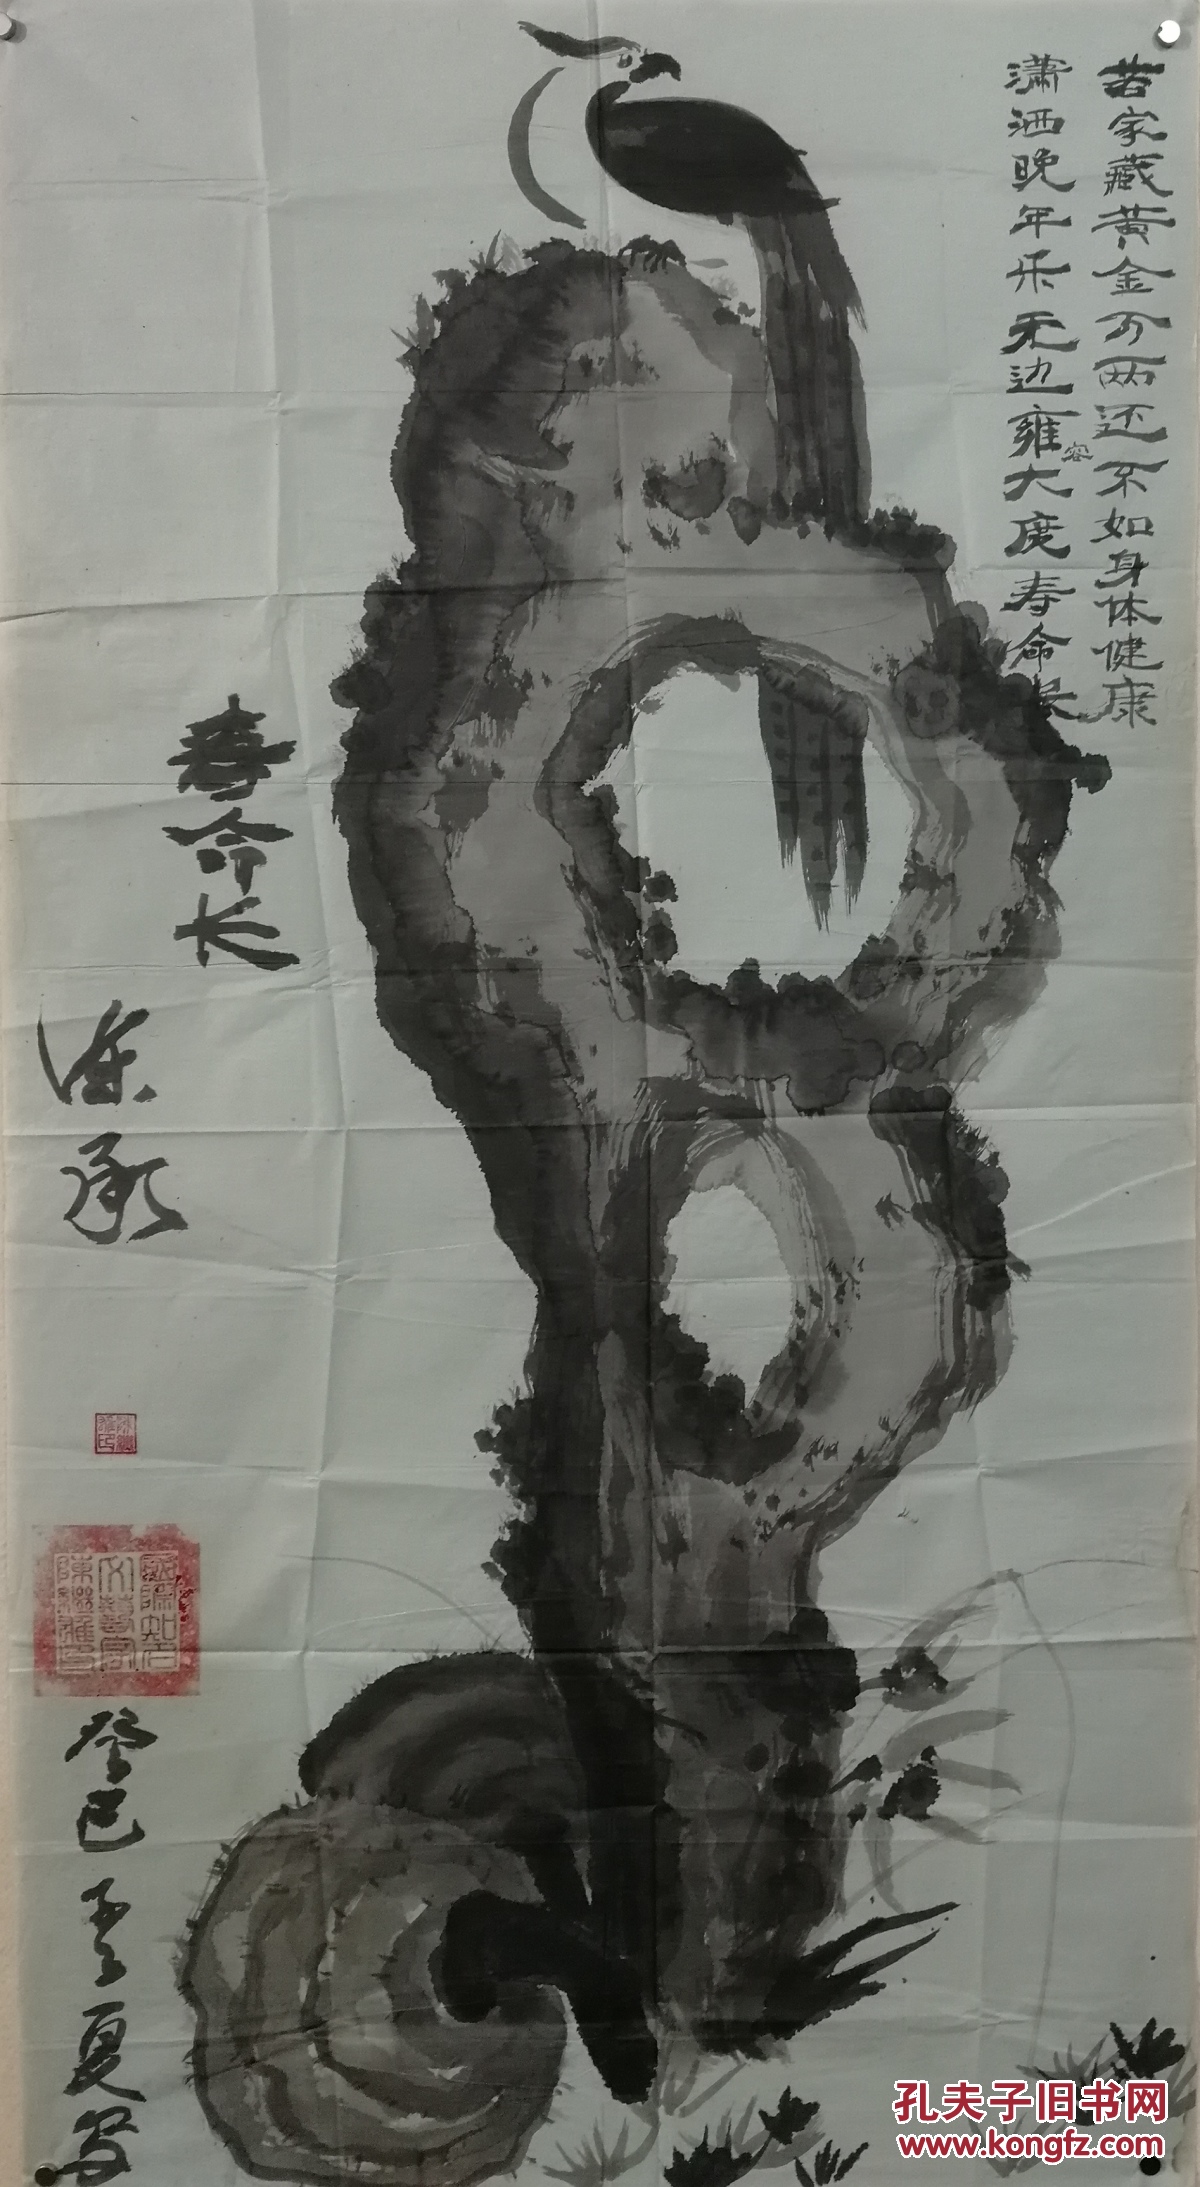 若家藏黄金万两还不如身体健康
潇洒晚年乐无边雍容大度寿命长
寿命长
陈承
國際知名
陳繼雄
癸巳季夏写
孔夫子旧书网
www.kongfz.com